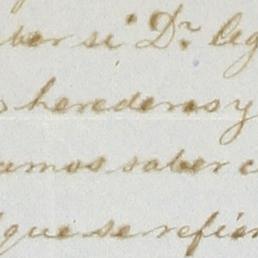 ber si Dr. Leg
herederos y
amos saber c
que se refier